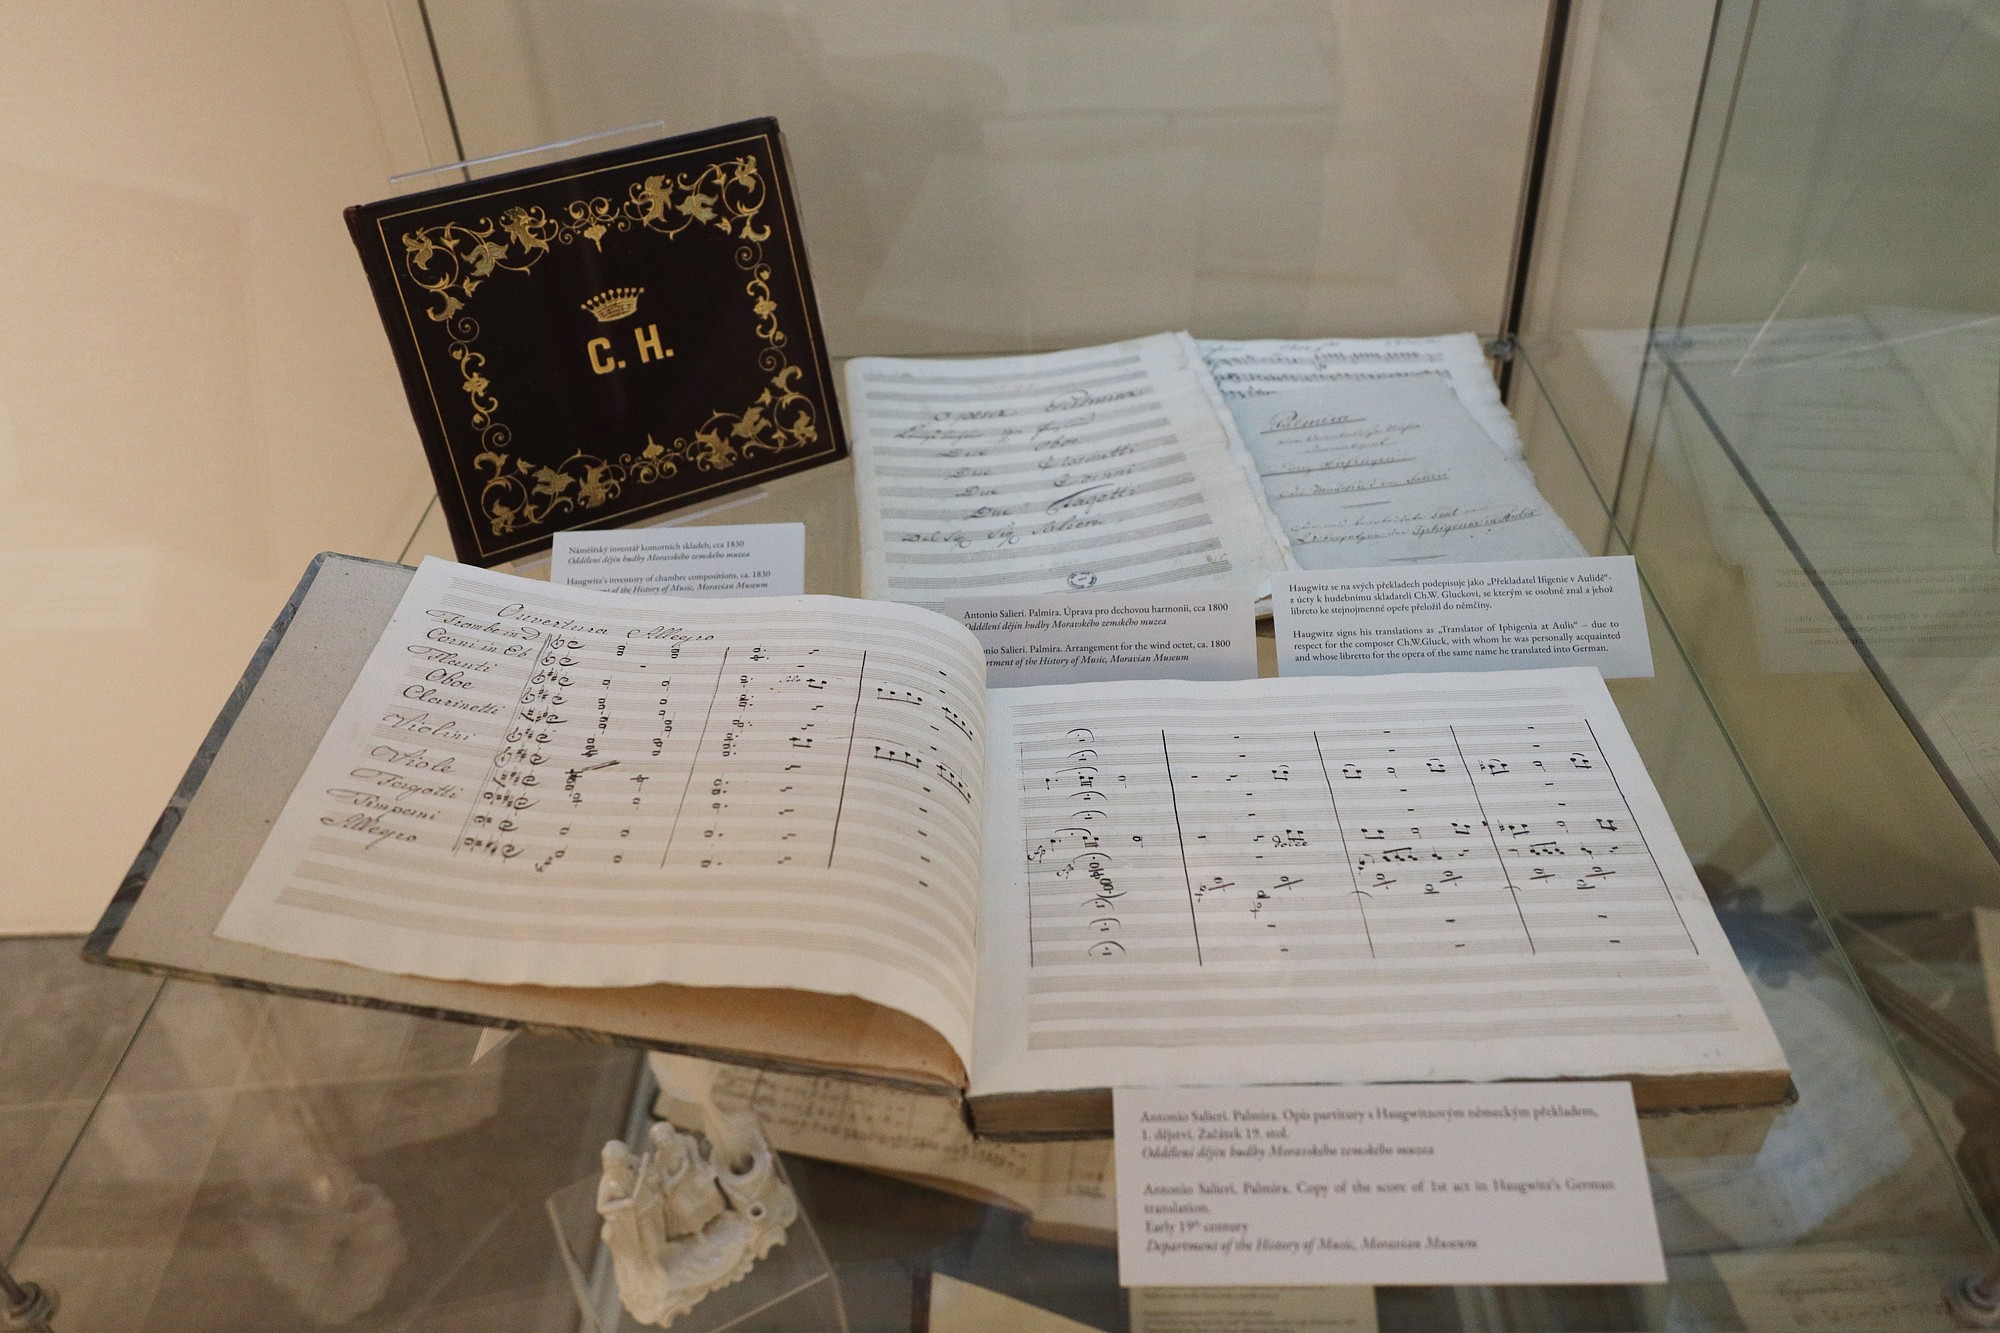 C. H.
Náměšťský inventář komorních skladeb, cca 1830
Oddělení dějin hudby Moravského zemského muzea
Haugwitz's inventory of chambre compositions, ca. 1830
of the History of Music, Moravian Museum
Opera Palmira
Due Oboe
Due Clarinetti
Due Corni
Due Fagotti
Del Sig Salieri
Palmira
Iphigenia in Aulis
Antonio Salieri. Palmira. Úprava pro dechovou harmonii, cca 1800
Oddělení dějin hudby Moravského zemského muzea
Salieri. Palmira. Arrangement for the wind octet, ca. 1800
of the History of Music, Moravian Museum
Haugwitz se na svých překladech podepisuje jako „Překladatel Ifigenie v Aulidě“-
z úcty k hudebnímu skladateli Ch.W. Gluckovi, se kterým se osobně znal a jehož
libreto ke stejnojmenné opeře přeložil do němčiny.
Haugwitz signs his translations as „Translator of Iphigenia at Aulis“ – due to
respect for the composer Ch.W.Gluck, with whom he was personally acquainted
and whose libretto for the opera of the same name he translated into German.
Ouvertura Allegro
Trombe in D
Corni in Eb
Flauti
Oboe
Clarinetti
Violini
Viole
Fagotti
Timpani
Allegro
dolce
Antonio Salieri. Palmira. Opis partitury s Haugwitzovým německým překladem,
1. dějství. Začátek 19. stol.
Oddělení dějin hudby Moravského zemského muzea
Antonio Salieri. Palmira. Copy of the score of 1st act in Haugwitz's German
translation.
Early 19th century
Department of the History of Music, Moravian Museum